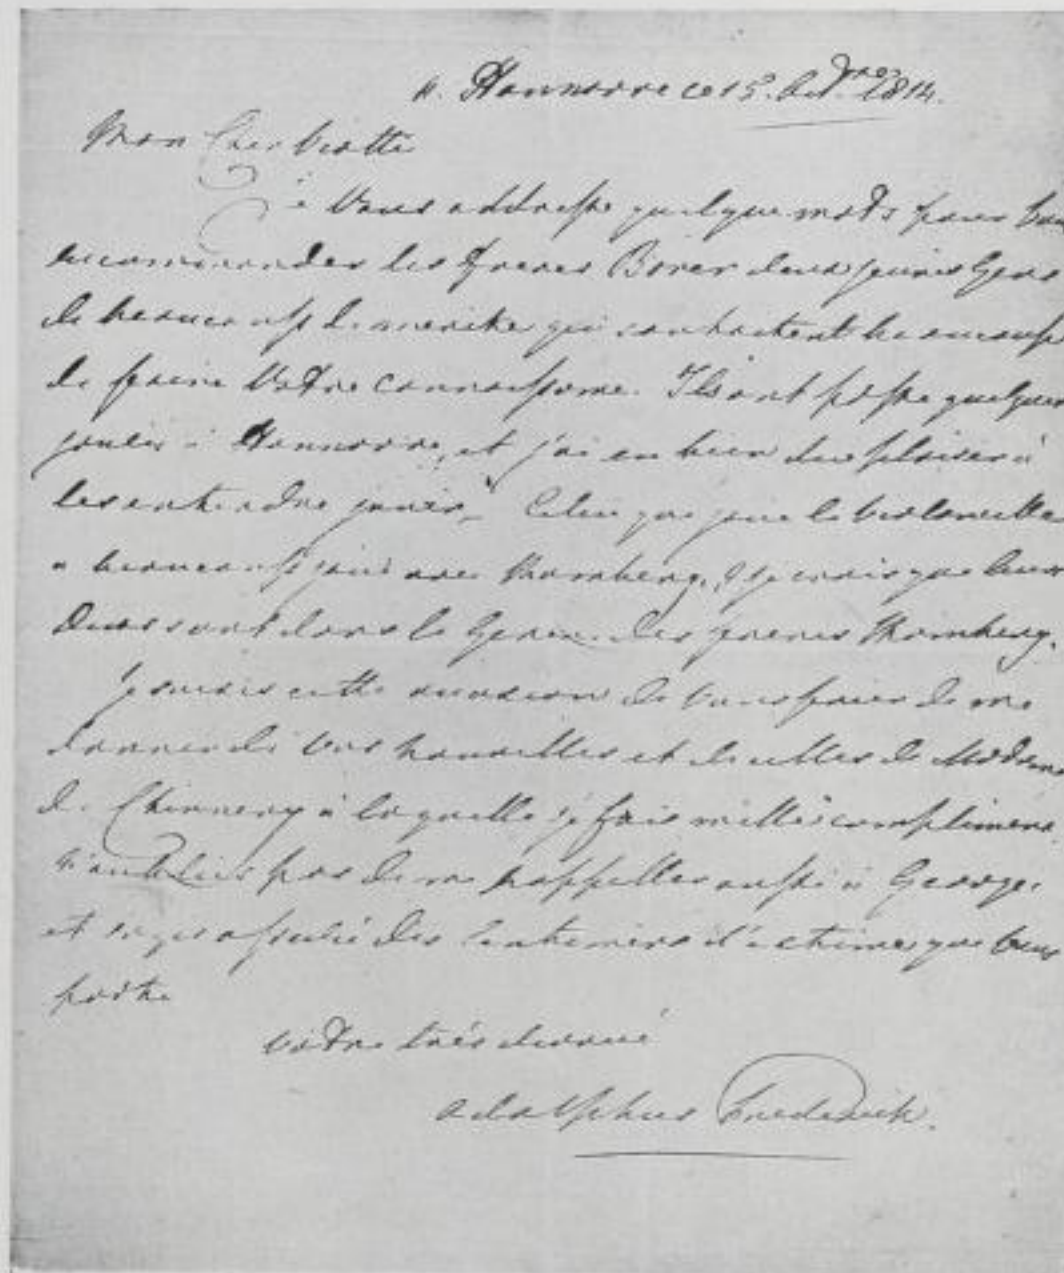 a Hannovre ce 15. Octbre 1814.
Mon Cher Viotti
Je Vous addresse quelque mots pour Vous
recommender les freres Borer deux jeunes Gens
de beaucoup de merite qui souhaitent beaucoup
de faire Votre connaissance. Ils ont passe quelques
jours a Hannovre, et j'ai eu bien du plaisir à
les entendre jouer. Celui que joue le Violoncelle
a beaucoup joué avec Romberg, & je crois que tous
Deux sont dans le Genre des freres Romberg.
Je saisis cette occasion de Vous prier de me
donner de Vos nouvelles et de celles de Madame
de Chinnery à laquelle je fais mille complimens.
N'oubliés pas de me rappeller aussi a George
et soyes assuré des Sentimens d'estime que Vous
porte
Votre très devoué
Adolphus Frederick.